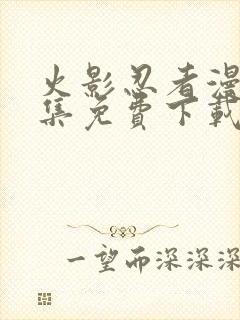 火影忍者漫
集免費下載
一望而深深深